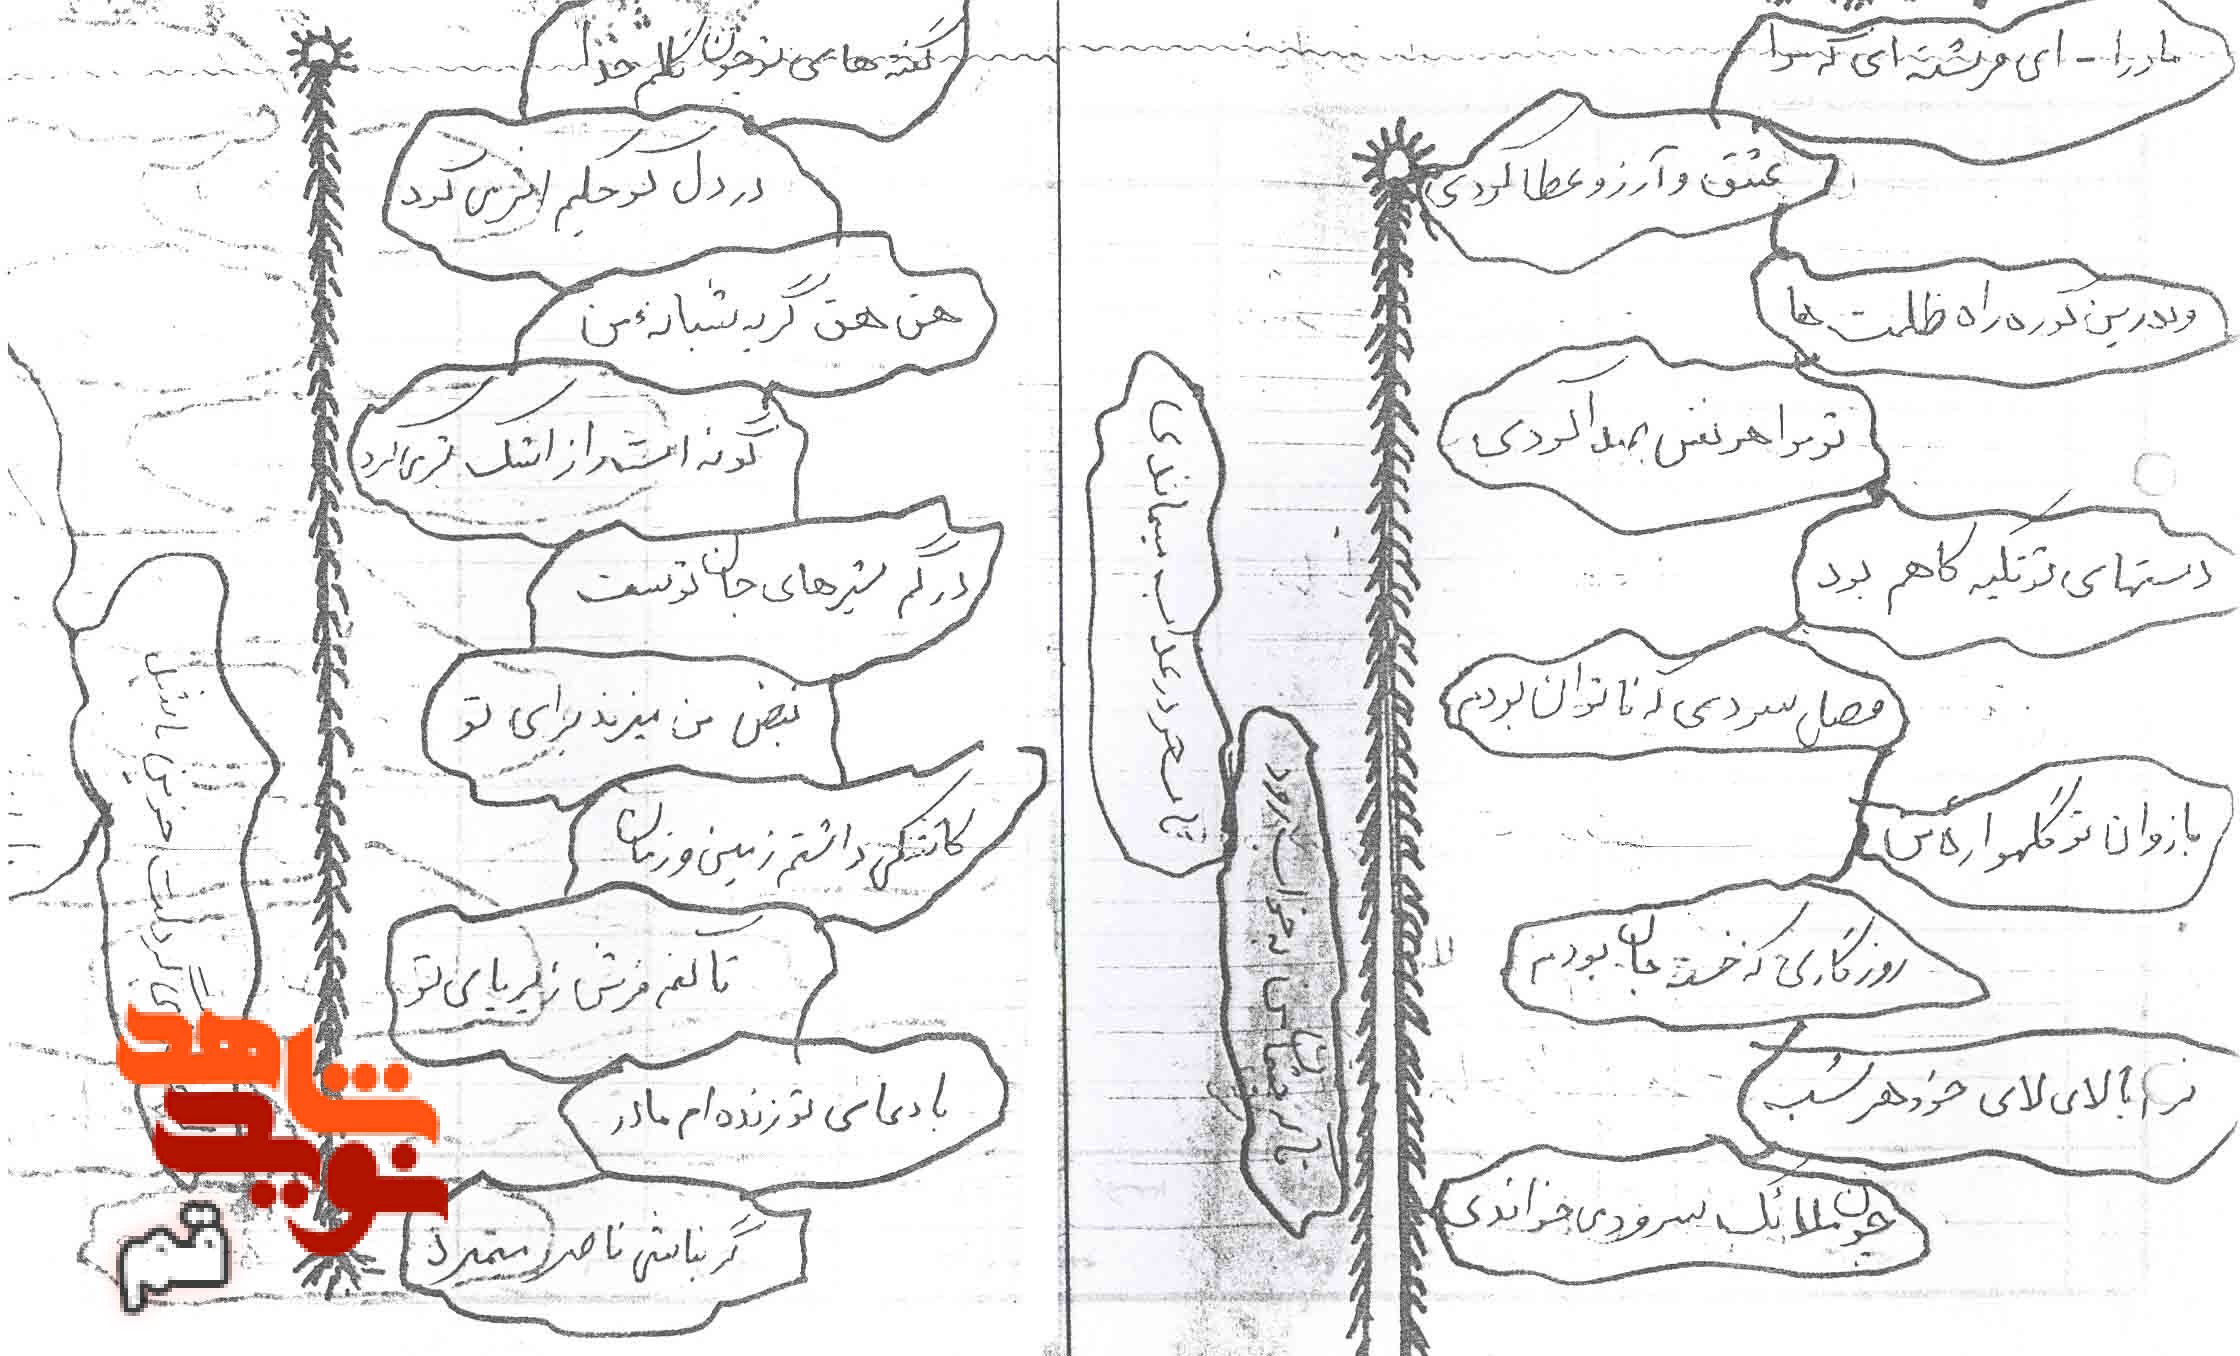 مادرا - ای فرشته ای که مرا
عشق و آرزو عطا کردی
وندرین کوره راه ظلمت ها
تو مرا هر نفس صدا کردی
دستهای تو تکیه گاهم بود
فصل سردی که ناتوان بودم
بازوان تو گهواره من
روزگاری که خسته جان بودم
نرم با لای لای خود هر شب
چون ملائک سرودی خواندی
تا که چشمان من به خواب رود
تا سحر در عذاب میماندی
گفته های تو چون کلام خدا
در دل کوچکم اثر می کرد
هق هق گریه شبانه من
گونه ات را از اشک تر می کرد
در رگم شیرهای جان توست
نبض من میزند برای تو
کاشکی داشتم زمین و زمان
تا کنم فرش زیر پای تو
با دعای تو زنده ام مادر
گر نباشی
شاهد
نوید
قم